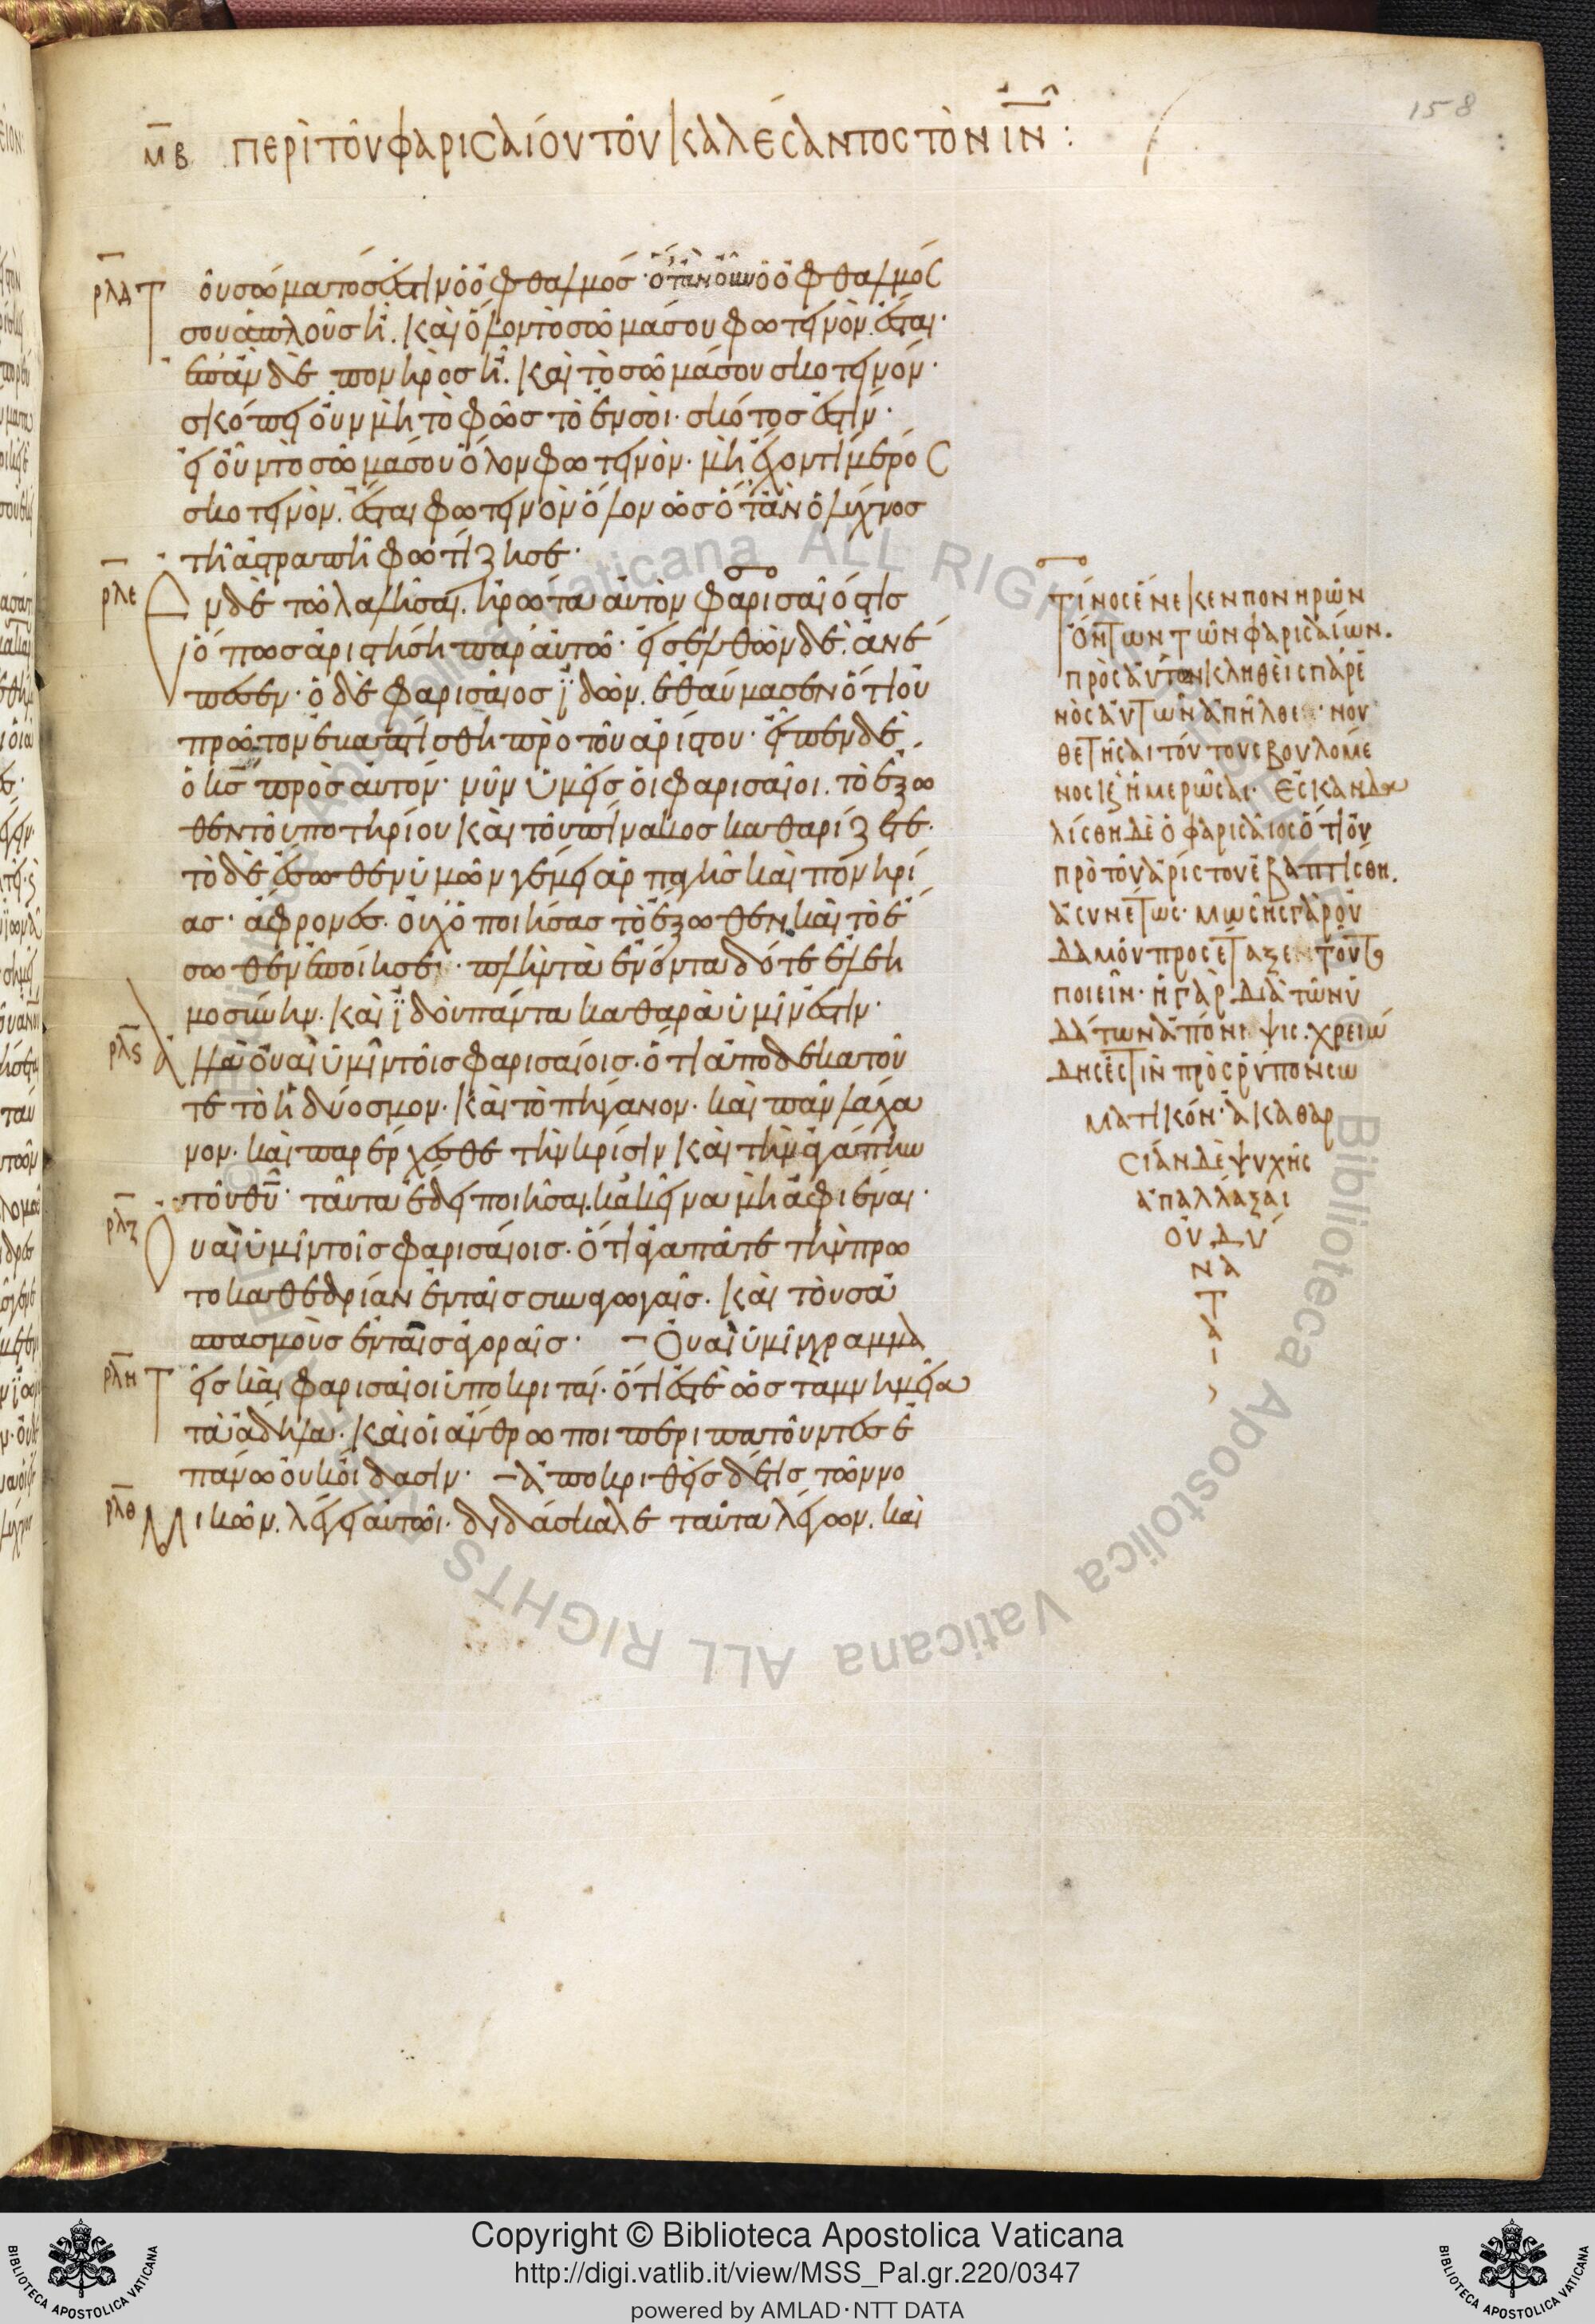 158
μβ περὶ τοῦ φαρισαίου τοῦ καλέσαντος τὸν ιν:
ρλδ Τοῦ σώματός ἐστιν ὁ ὀφθαλμός· ὅταν οὖν ὁ ὀφθαλμός
σου ἁπλοῦς ἦ. καὶ ὅλον τὸ σῶμά σου φωτεινὸν ἔσται·
ἐπὰν δὲ πονηρὸς ἦ. καὶ τὸ σῶμά σου σκοτεινόν·
σκόπει οὖν μὴ τὸ φῶς τὸ ἐν σοὶ σκότος ἐστίν·
εἰ οὖν τὸ σῶμά σου ὅλον φωτεινὸν· μὴ ἔχον τὶ μέρος
σκοτεινὸν. ἔσται φωτεινὸν ὅλον ὡς ὅταν ὁ λύχνος
τῆ ἀστραπῆ φωτίζη σε·
ρλε Ἐν δὲ τῶ λαλῆσαι. ἠρώτα αὐτὸν φαρισαῖός τις
ὅπως ἀριστήση παρ' αὐτῶ· εἰσελθὼν δὲ. ἀνέ
πεσεν· ὁ δὲ φαρισαῖος ϊδὼν. ἐθαύμασεν ὅτι οὐ
πρῶτον ἐβαπτίσθη πρὸ τοῦ ἀρίστου· εἶπεν δὲ
ὁ κς πρὸς αὐτόν· νῦν ὑμεῖς οἱ φαρισαῖοι. τὸ ἔξω
θεν τοῦ ποτηρίου καὶ τοῦ πίνακος καθαρίζετε.
τὸ δὲ ἔσωθεν ὑμῶν γέμει ἁρπαγῆς καὶ πονηρί
ας· ἄφρονες. οὐχ ὁ ποιήσας τὸ ἔξωθεν καὶ τὸ ἔ
σωθεν ἐποίησεν· πλὴν τὰ ἐνόντα δότε ἐλεη
μοσύνην. καὶ ϊδοὺ πάντα καθαρὰ ὑμῖν ἐστιν·
ρλς Ἀλλὰ οὐαὶ ὑμῖν τοῖς φαρισαίοις. ὅτι ἀποδεκατοῦ
τε τὸ ἡδύοσμον. καὶ τὸ πήγανον. καὶ πᾶν λάχα
νον. καὶ παρέρχεσθε τὴν κρίσιν καὶ τὴν ἀγάπην
τοῦ θυ· ταῦτα ἔδει ποιῆσαι. κἀκεῖνα μὴ ἀφιέναι·
ρλζ Οὐαὶ ὑμῖν τοῖς φαρισαίοις. ὅτι ἀγαπᾶτε τὴν πρω
τοκαθεδρίαν ἐν ταῖς συναγωγαῖς. καὶ τοὺς ἀ
σπασμοὺς ἐν ταῖς ἀγοραῖς· Οὐαὶ ὑμῖν γραμμα
ρλη Τεῖς καὶ φαρισαῖοι ὑποκριταί. ὅτι ἐστὲ ὡς τὰ μνημεῖα
τὰ ἄδηλα. καὶ οἱ ἄνθρωποι περιπατοῦντες ἐ
πάνω οὐκ οἴδασιν· ἀποκριθεὶς δέ τις τῶν νο
ρλθ Μικῶν. λέγει αὐτῶι. διδάσκαλε ταῦτα λέγων. καὶ
Τίνος ἕνεκεν πονηρῶν
ὄντων τῶν φαρισαίων.
πρὸς αὐτῶν κληθεὶς παρ' ἑ
νὸς αὐτῶν ἀπῆλθε· νου
θετῆσαι τούτους βουλόμε
νος ἐξημερῶσαι· Ἐσκανδα
λίσθη δὲ ὁ φαρισαῖος ὅτι οὐ
πρὸ τοῦ ἀρίστου ἐβαπτίσθη.
ἀσυνέτως· μωσῆς γὰρ οὐ
δαμοῦ προσέταξεν τοῦτο
ποιεῖν· ἡ γὰρ διὰ τῶν ὑ
δάτων ἀπόνιψις. χρειώ
δης ἐστὶν πρὸς ῥύπον σω
ματικόν· ἀκαθαρ
σίαν δὲ ψυχῆς
ἀπαλλάξαι
οὐ δύ
να
τ
α
ι
Copyright © Biblioteca Apostolica Vaticana
http://digi.vatlib.it/view/MSS_Pal.gr.220/0347
powered by AMLAD·NTT DATA
BIBLIOTECA APOSTOLICA VATICANA
BIBLIOTECA APOSTOLICA VATICANA